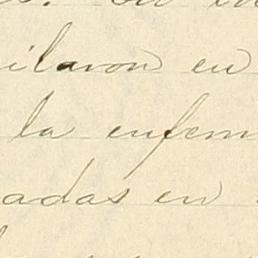 ilaron en
la enferm
adas en